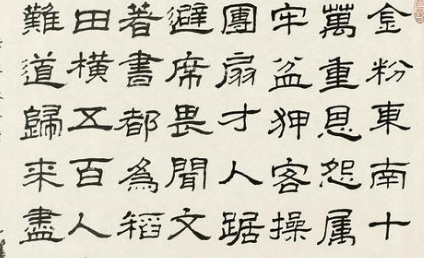 金粉東南十
萬重恩怨属
牢盆狎客操
團扇才人踞
避席畏聞文
著書都為稻
田橫五百人
難道歸来盡